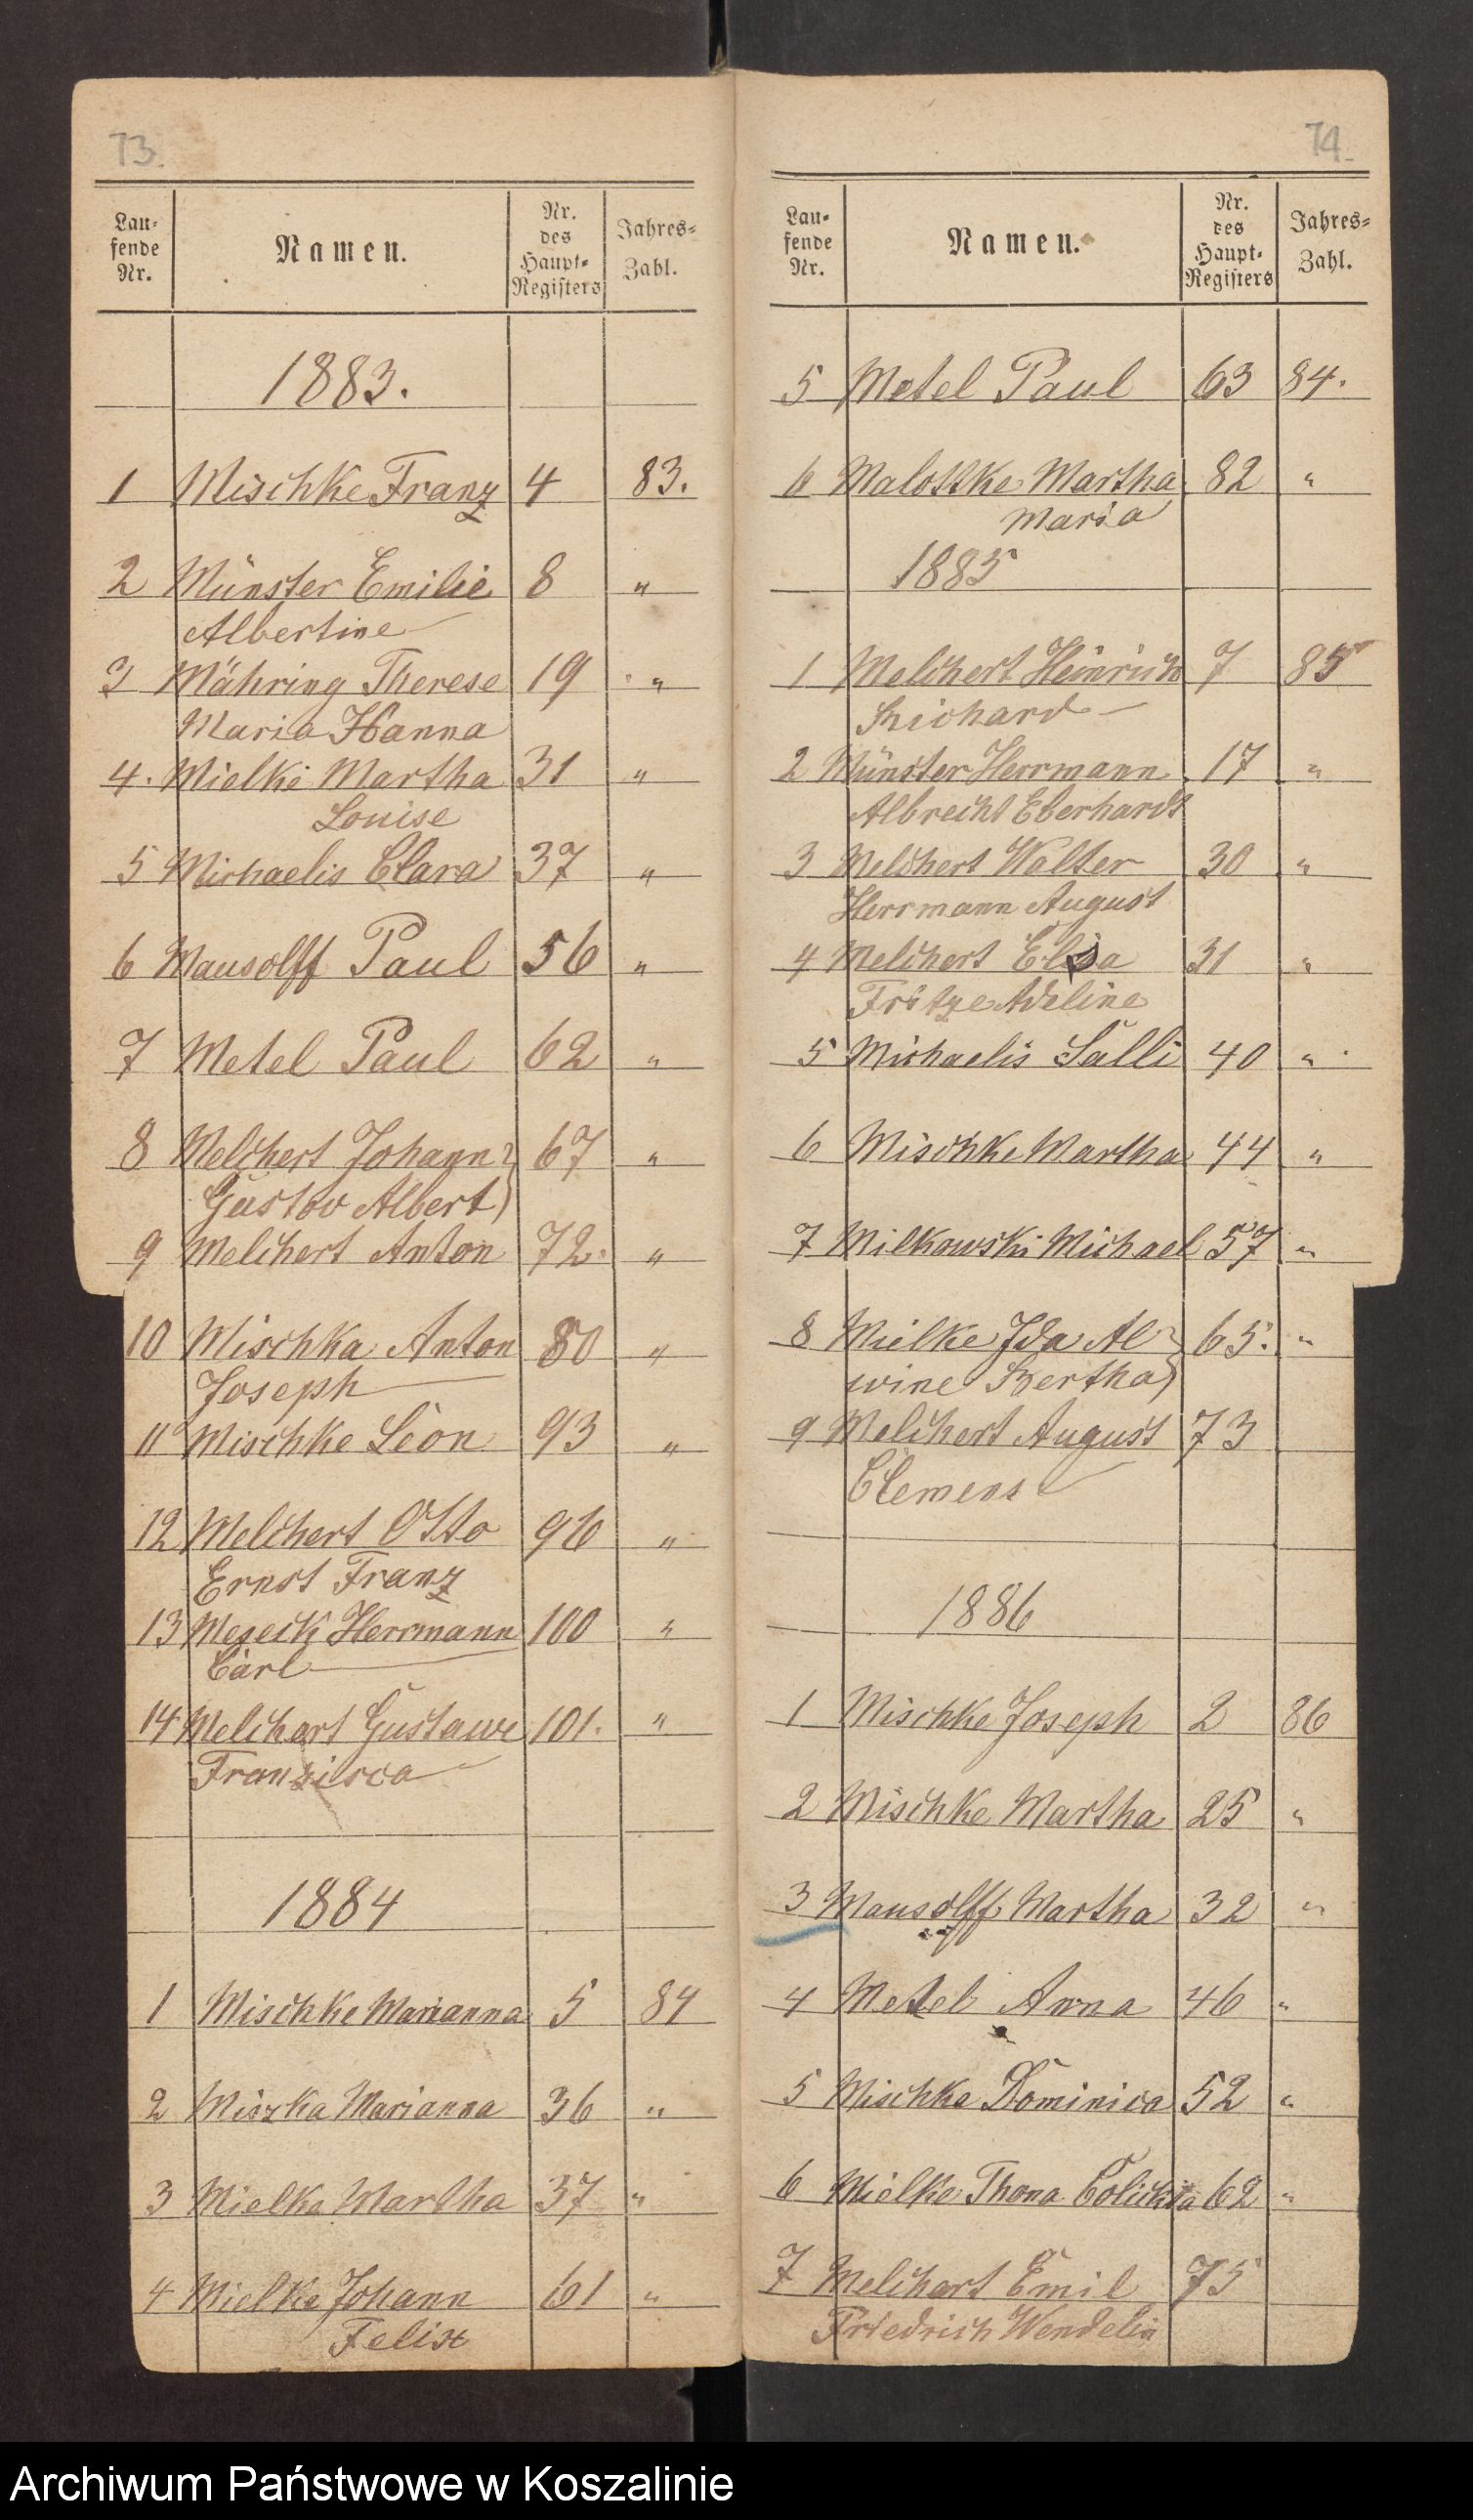 73.
Lau-
fende
Nr.
Namen.
Nr.
des
Haupt-
Registers
Jahres-
Zahl.
1883.
1 Mischke Franz 4 83.
2 Münster Emilie 8 "
Albertine
3 Mähring Therese 19 "
Maria Hanna
4. Mielke Martha 31 "
Louise
5 Michaelis Clara 37 "
6 Mausolff Paul 56 "
7 Metel Paul 62 "
8 Melchert Johann 67 "
Gustav Albert
9 Melchert Anton 72. "
10 Mischka Anton 80 "
Joseph
11 Mischke Leon 93 "
12 Melchert Otto 96 "
Ernst Franz
13 Meseck Herrmann 100 "
Carl
14 Melchert Gustawe 101. "
Franzisca
1884
1 Mischke Marianna 5 84
2 Miszka Marianna 36 "
3 Mielke Martha 37 "
4 Mielke Johann 61 "
Felix
74.
Lau-
fende
Nr.
Namen.
Nr.
des
Haupt-
Registers
Jahres-
Zahl.
5 Metel Paul 63 84.
6 Malottke Martha 82 "
Maria
1885
1 Melchert Heinrich 7 85
Richard
2 Münster Herrmann 17 "
Albrecht Eberhardt
3 Melchert Walter 30 "
Herrmann August
4 Melchert Elisa 31 "
Fritze Adeline
5 Michaelis Salli 40 "
6 Mischke Martha 44 "
7 Milkowski Michael 57 "
8 Mielke Ida Al 65. "
wine Bertha
9 Melchert August 73
Clemens
1886
1 Mischke Joseph 2 86
2 Mischke Martha 25 "
3 Mausolff Martha 32 "
4 Metel Anna 46 "
5 Mischke Dominica 52 "
6 Mielke 62 "
7 Melchert Emil 75
Friedrich Wendelin
Archiwum Państwowe w Koszalinie